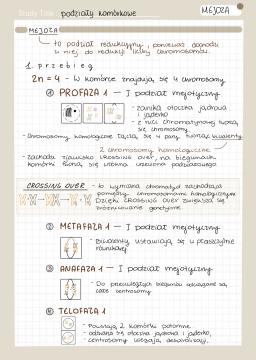 Study Time podziały komórkowe
MEJOZA
MEJOZA
to podział redukcyjny, ponieważ dochodzi
w niej do redukcji liczby chromosomów.
1. przebieg
2n = 4 - w komórce znajdują się 4 chromosomy
① PROFAZA 1 — I podział mejotyczny
- zanika otoczka jądrowa
i jąderko
- z nici chromatynowej tworzą
się chromosomy
- chromosomy homologiczne łączą się w pary tworząc biwalenty.
2 chromosomy homologiczne
- zachodzi zjawisko crossing over, na biegunach
komórki tworzą się włókna wrzeciona podziałowego
CROSSING OVER - to wymiana chromatyd zachodząca
pomiędzy chromosomami homologicznymi
Dzięki CROSSING OVER zwiększa się
zróżnicowanie genetyczne
② METAFAZA 1 — I podział mejotyczny
- Biwalenty ustawiają się w płaszczyźnie
równikowej
③ ANAFAZA 1 — I podział mejotyczny
- Do przeciwległych biegunów odciągane są
całe chromosomy
④ TELOFAZA 1
- Powstają 2 komórki potomne
- odtwarza się otoczka jądrowa i jąderko,
- chromosomy ulegają despiralizacji.